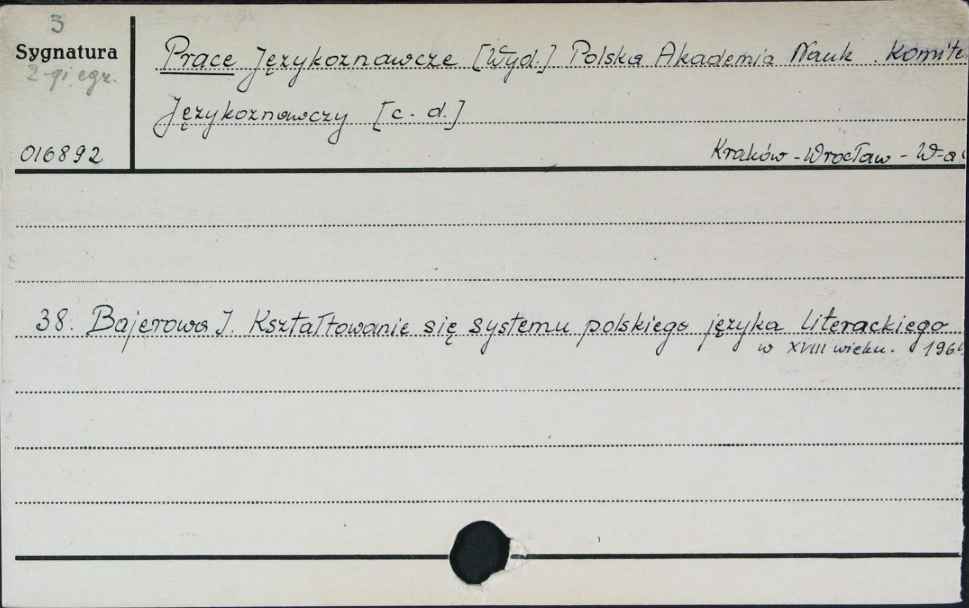 3
Sygnatura
2-gi egz.
016892
Prace Językoznawcze [Wyd.] Polska Akademia Nauk. Komite
Językoznawczy [c. d.]
Kraków - Wrocław - W-a
38. Bajerowa I. Kształtowanie się systemu polskiego języka literackiego
w XVIII wieku. 196